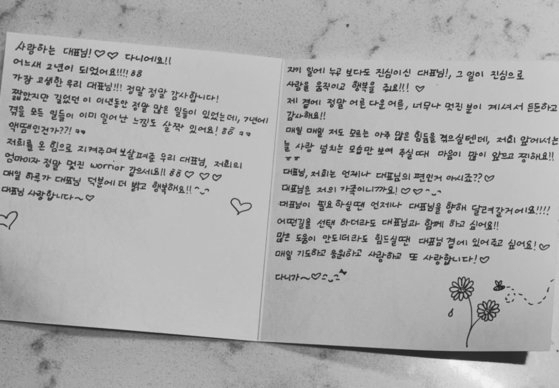 사랑하는 대표님! ♡♡ 다니에요!!
어느새 2년이 되었어요!!!! ㅎㅎ
가장 고생한 우리 대표님!!! 정말 정말 감사합니다!
짧았지만 길었던 이 이년동안 정말 많은 일들이 있었는데, 7년에
겪을 모든 일들이 이미 일어난 느낌도 살짝 있어요! ㅎㅎ
액땜인건가??!
저희를 온 힘으로 지켜주며 보살펴준 우리 대표님, 저희의
엄마이자 정말 멋진 worrior 같으세요!! ㅎㅎ ♡ ♡ ♡
매일 하루가 대표님 덕분에 더 밝고 행복해요!! ^_^
대표님 사랑합니다~ ♡
자기 일에 누구 보다도 진심이신 대표님!, 그 일이 진심으로
사람을 움직이고 행복을 줘요!!! ♡
제 곁에 정말 어른 다운 어른, 너무나 멋진 분이 계셔서 든든하고
감사해요!!
매일 매일 저도 모르는 아주 많은 힘듦을 겪으실텐데, 저희 앞에서는
늘 사랑 넘치는 모습만 보여 주실 때 마음이 많이 아프고 찡해요!!
대표님, 저희는 언제나 대표님의 편인거 아시죠?? ♡
대표님은 저의 가족이니까요! ♡♡ ^_^
대표님이 필요하실땐 언제나 대표님을 향해 달려갈거에요!!!!
어떤길을 선택 하더라도 대표님과 함께 하고 싶어요!!
많은 도움이 안되더라도 힘드실땐 대표님 곁에 있어주고 싶어요! ♡
매일 기도하고 응원하고 사랑하고 또 사랑합니다! ♡
다니가~ ♡ ^_^